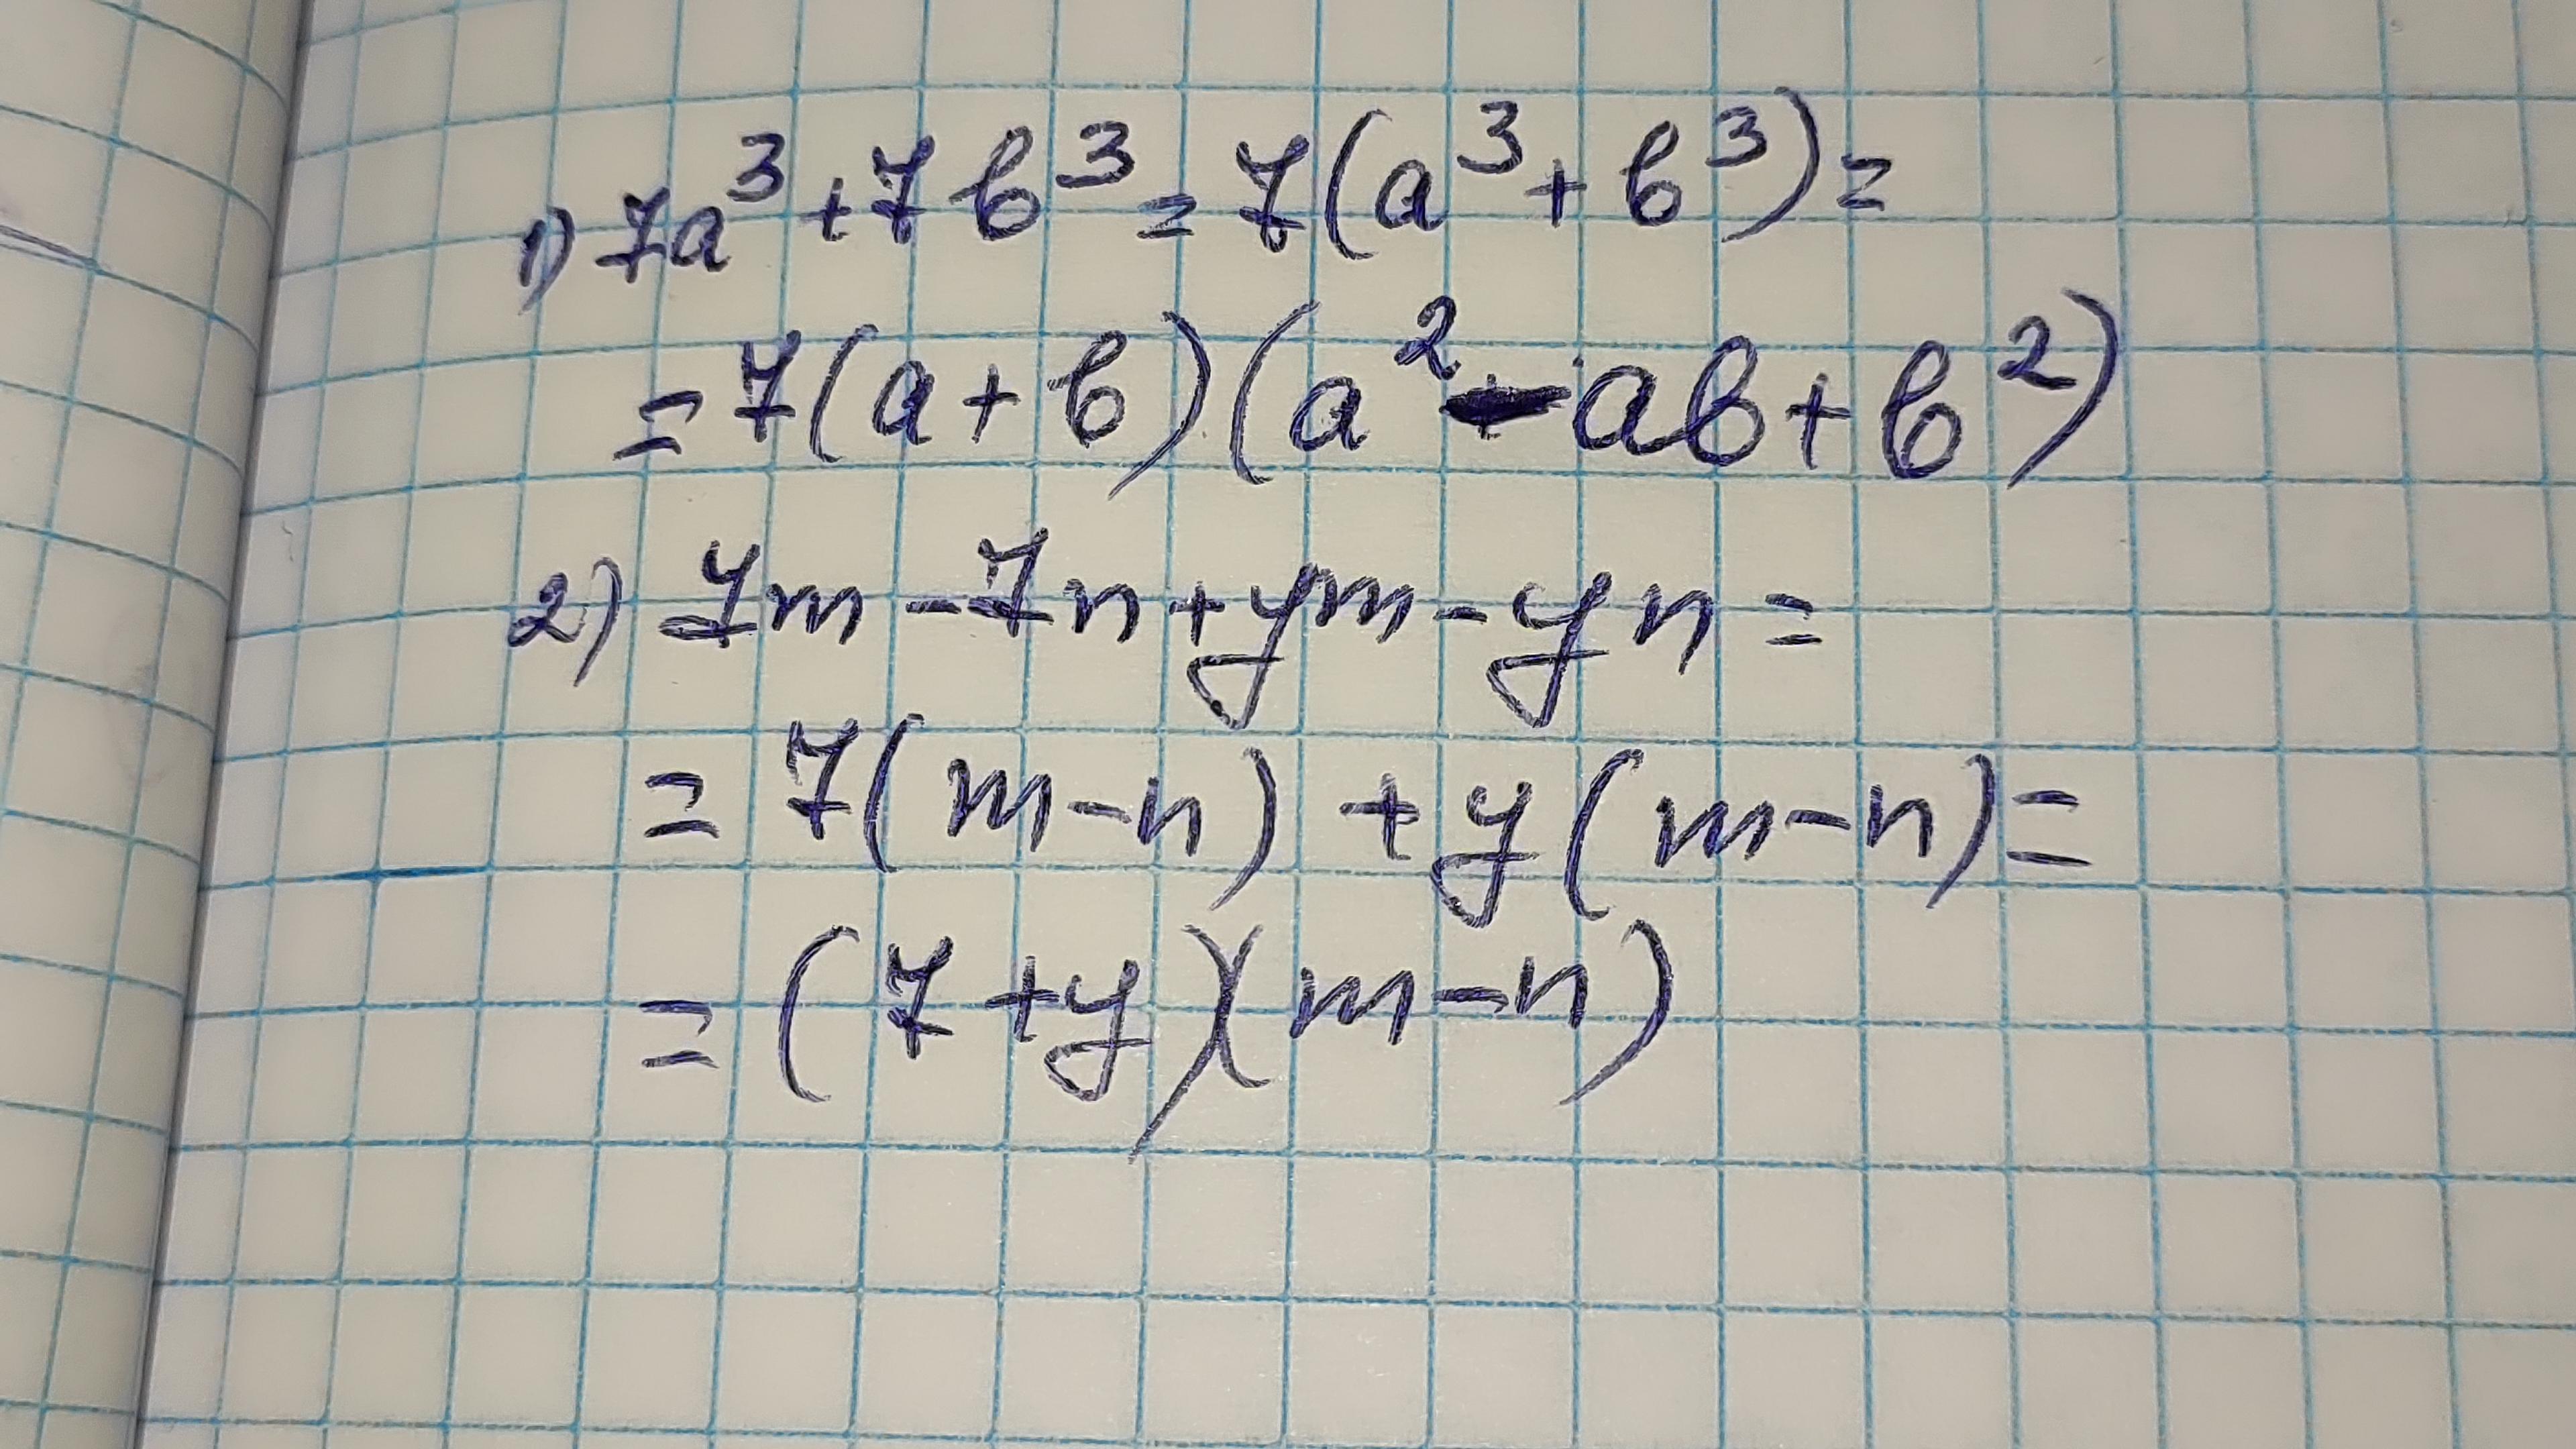 1) 7a³+7b³=7(a³+b³)=
=7(a+b)(a²-ab+b²)
2) 7m-7n+ym-yn=
=7(m-n)+y(m-n)=
=(7+y)(m-n)